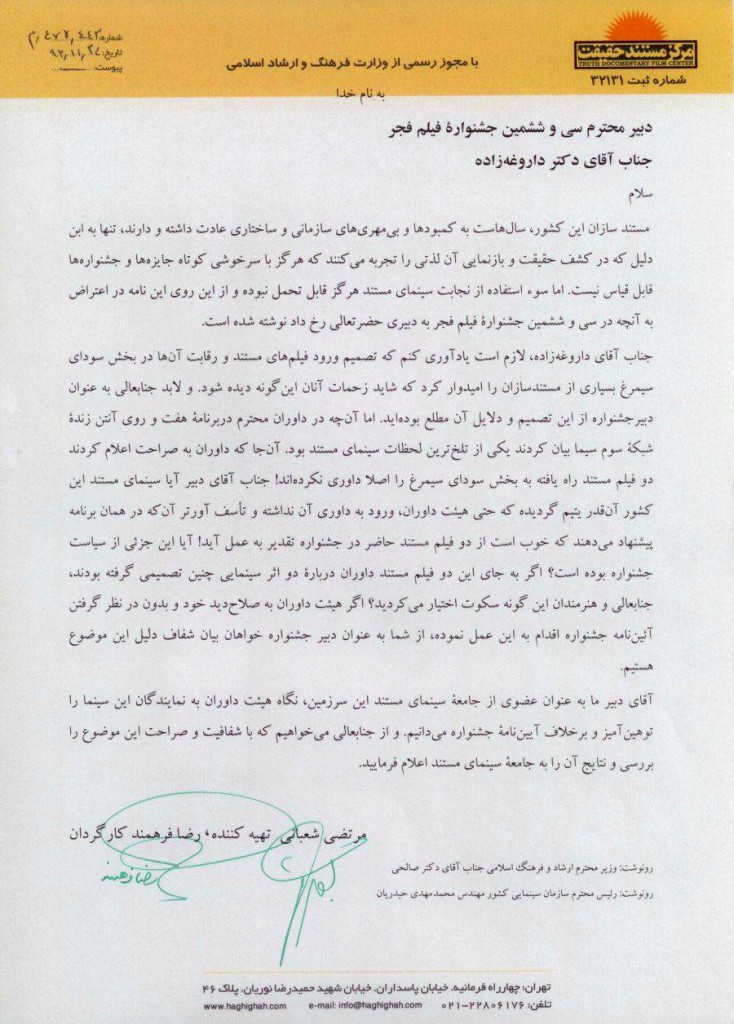 مرکز مستند حقیقت
TRUTH DOCUMENTARY FILM CENTER
شماره ثبت ۳۲۱۳۱
با مجوز رسمی از وزارت فرهنگ و ارشاد اسلامی
شماره:
تاریخ:
پیوست:
به نام خدا
دبیر محترم سی و ششمین جشنوارهٔ فیلم فجر
جناب آقای دکتر داروغه‌زاده
سلام
مستند سازان این کشور، سال‌هاست به کمبودها و بی‌مهری‌های سازمانی و ساختاری عادت داشته و دارند، تنها به این
دلیل که در کشف حقیقت و بازنمایی آن لذتی را تجربه می‌کنند که هرگز با سرخوشی کوتاه جایزه‌ها و جشنواره‌ها
قابل قیاس نیست. اما سوء استفاده از نجابت سینمای مستند هرگز قابل تحمل نبوده و از این روی این نامه در اعتراض
به آنچه در سی و ششمین جشنوارهٔ فیلم فجر به دبیری حضرتعالی رخ داد نوشته شده است.
جناب آقای داروغه‌زاده، لازم است یادآوری کنم که تصمیم ورود فیلم‌های مستند و رقابت آن‌ها در بخش سودای
سیمرغ بسیاری از مستندسازان را امیدوار کرد که شاید زحمات آنان این‌گونه دیده شود. و لابد جنابعالی به عنوان
دبیرجشنواره از این تصمیم و دلایل آن مطلع بوده‌اید. اما آن‌چه در داوران محترم دربرنامهٔ هفت و روی آنتن زندهٔ
شبکهٔ سوم سیما بیان کردند یکی از تلخ‌ترین لحظات سینمای مستند بود. آن‌جا که داوران به صراحت اعلام کردند
دو فیلم مستند راه یافته به بخش سودای سیمرغ را اصلا داوری نکرده‌اند! جناب آقای دبیر آیا سینمای مستند این
کشور آن‌قدر یتیم گردیده که حتی هیئت داوران، ورود به داوری آن نداشته و تأسف آورتر آن‌که در همان برنامه
پیشنهاد می‌دهند که خوب است از دو فیلم مستند حاضر در جشنواره تقدیر به عمل آید! آیا این جزئی از سیاست
جشنواره بوده است؟ اگر به جای این دو فیلم مستند داوران دربارهٔ دو اثر سینمایی چنین تصمیمی گرفته بودند،
جنابعالی و هنرمندان این گونه سکوت اختیار می‌کردید؟ اگر هیئت داوران به صلاح‌دید خود و بدون در نظر گرفتن
آئین‌نامه جشنواره اقدام به این عمل نموده، از شما به عنوان دبیر جشنواره خواهان بیان شفاف دلیل این موضوع
هستیم.
آقای دبیر ما به عنوان عضوی از جامعهٔ سینمای مستند این سرزمین، نگاه هیئت داوران به نمایندگان این سینما را
توهین‌آمیز و برخلاف آیین‌نامهٔ جشنواره می‌دانیم. و از جنابعالی می‌خواهیم که با شفافیت و صراحت این موضوع را
بررسی و نتایج آن را به جامعهٔ سینمای مستند اعلام فرمایید.
مرتضی شعبانی تهیه کننده، رضا فرهمند کارگردان
رونوشت: وزیر محترم ارشاد و فرهنگ اسلامی جناب آقای دکتر صالحی
رونوشت: رئیس محترم سازمان سینمایی کشور مهندس محمدمهدی حیدریان
تهران: چهارراه فرمانیه، خیابان پاسداران، خیابان شهید حمیدرضا نوریان، پلاک ۴۶
تلفن: ۲۲۸۰۶۱۷۶-۰۲۱ e-mail: info@haghighah.com www.haghighah.com